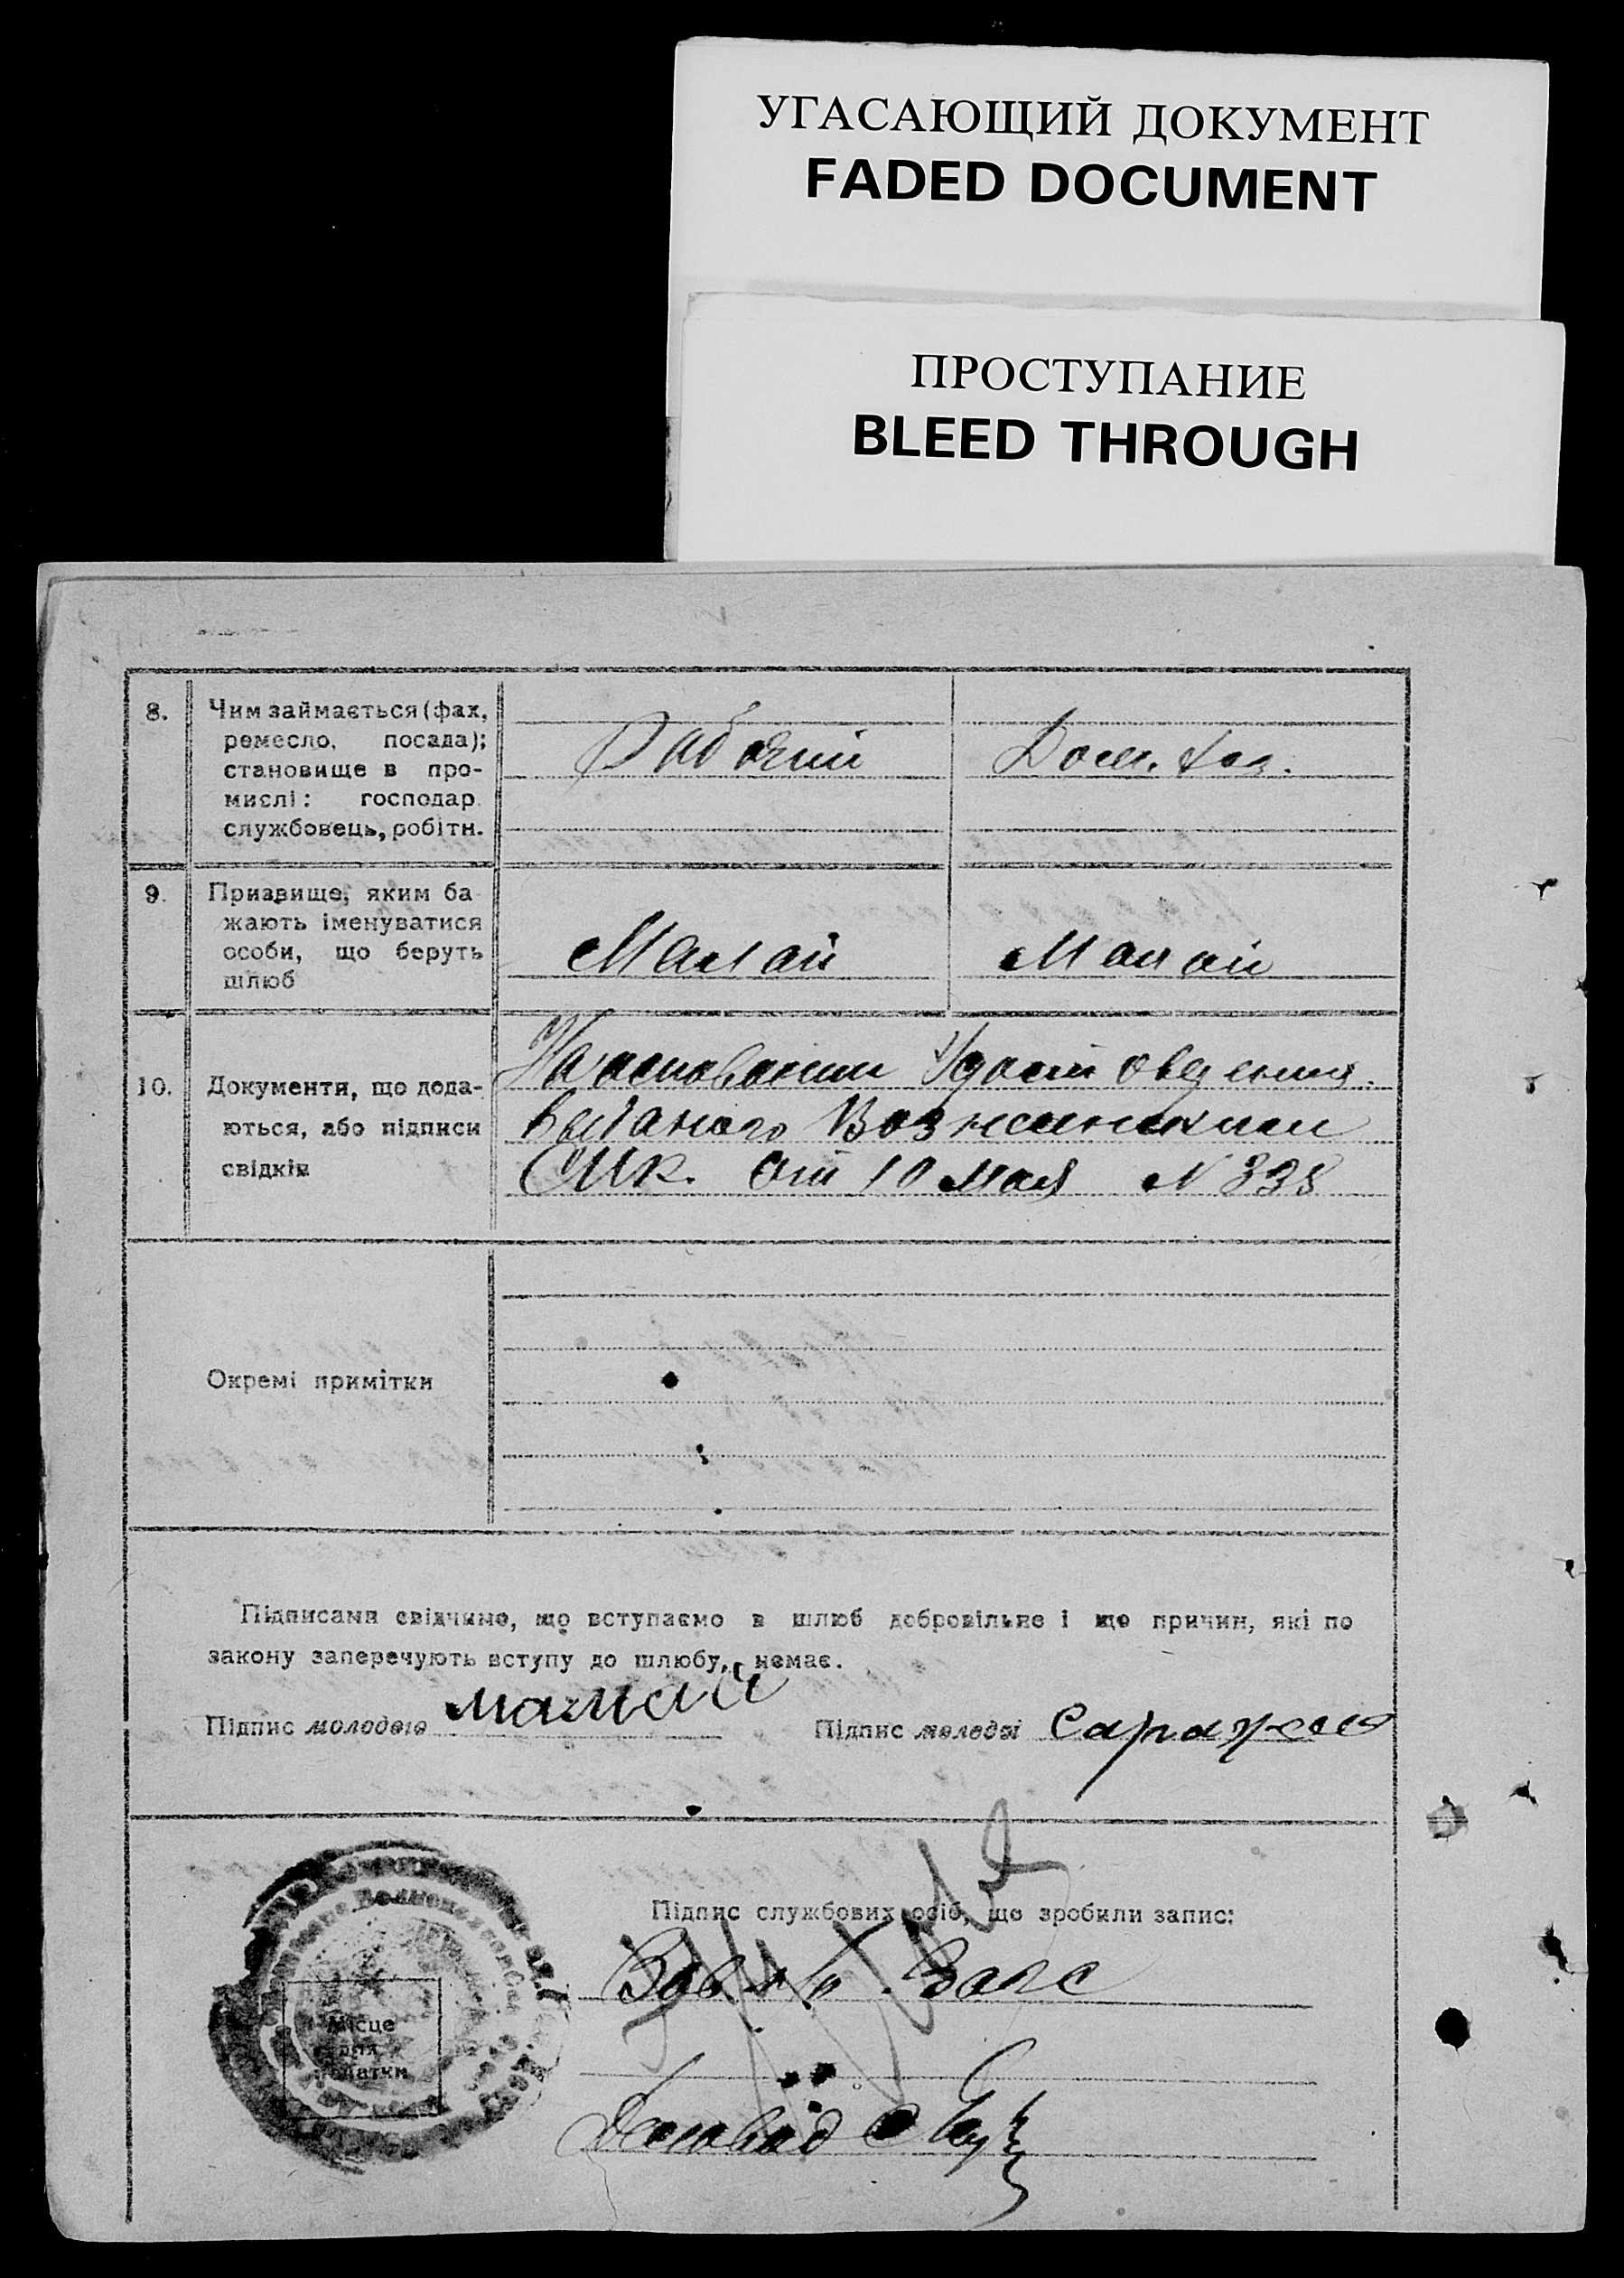 УГАСАЮЩИЙ ДОКУМЕНТ
FADED DOCUMENT
ПРОСТУПАНИЕ
BLEED THROUGH
8.
Чим займається (фах,
ремесло, посада);
становище в про-
мислі: господар
службовець, робітн.
Рабочий
Дом. хоз.
9.
Призвище, яким ба
жають іменуватися
особи, що беруть
шлюб
Мамай
Мамай
10.
Документи, що дода-
ються, або підписи
свідків
На основании Удостоведения
выданого
СИК. от 10 мая N 338
Окремі примітки
Підписами свідчимо, що вступаємо в шлюб добровільно і що причин, які по
закону заперечують вступу до шлюбу, немає.
Підпис молодого Мамай
Підпис молодої
Підпис службових осіб, що зробили запис:
Загс
Місце
для
Деловод